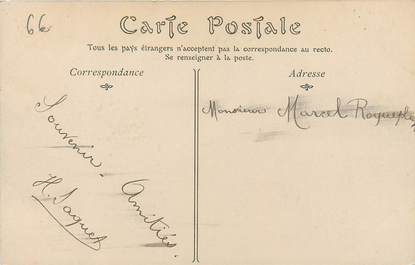 66
Carte Postale
Tous les pays étrangers n'acceptent pas la correspondance au recto.
Se renseigner à la poste.
Correspondance
Adresse
Souvenir.
Amitiés.
H. Saquet
Monsieur Marcel